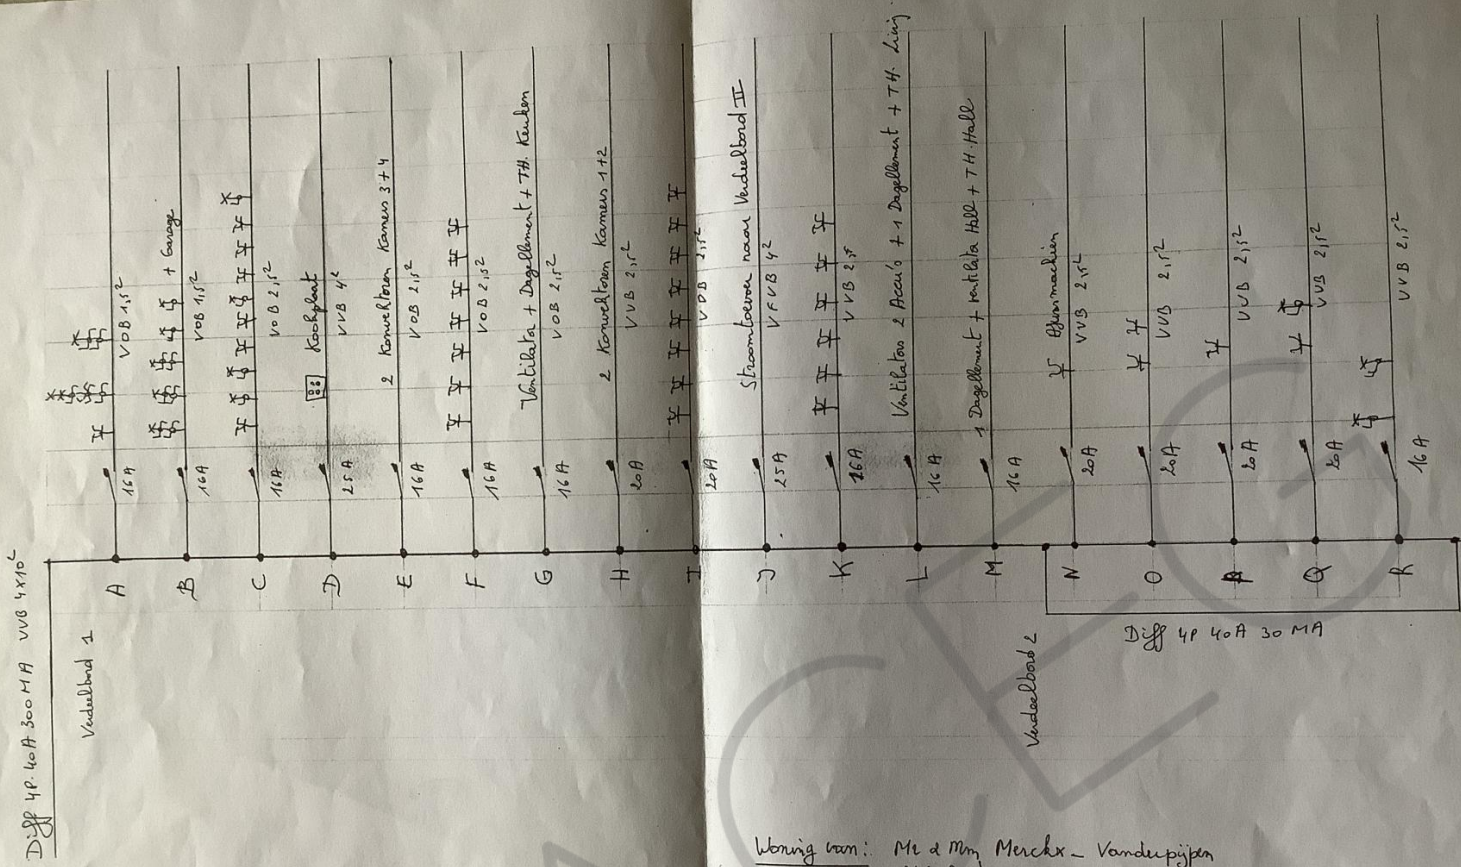 Diff 4P. 40A 300MA VVB 4x10²
Verdeelbord 1
A
16A
VOB 1,5²
B
16A
VOB 1,5²
+ Garage
C
16A
VOB 2,5²
D
25A
VVB 4²
Kookplaat
E
16A
VOB 2,5²
2 Konvektoren Kamers 3+4
F
16A
VOB 2,5²
G
16A
VOB 2,5²
Ventilator + Dagellement + TH. Keuken
H
20A
VVB 2,5²
2 Konvektoren Kamers 1+2
I
20A
VOB 2,5²
J
25A
VFVB 4²
Stroomtoevoer naar Verdeelbord II
K
16A
VVB 2,5
L
16A
Ventilators 2 Accu's + 1 Dagellement + TH. Living
M
16A
1 Dagellement + ventilator Hall + TH. Hall
Verdeelbord 2
N
20A
VVB 2,5²
O
20A
VVB 2,5²
P
20A
VVB 2,5²
Q
20A
VVB 2,5²
R
16A
VVB 2,5²
Diff 4P 40A 30 MA
Woning van: Mr & Mm Merckx - Vanderpijpen